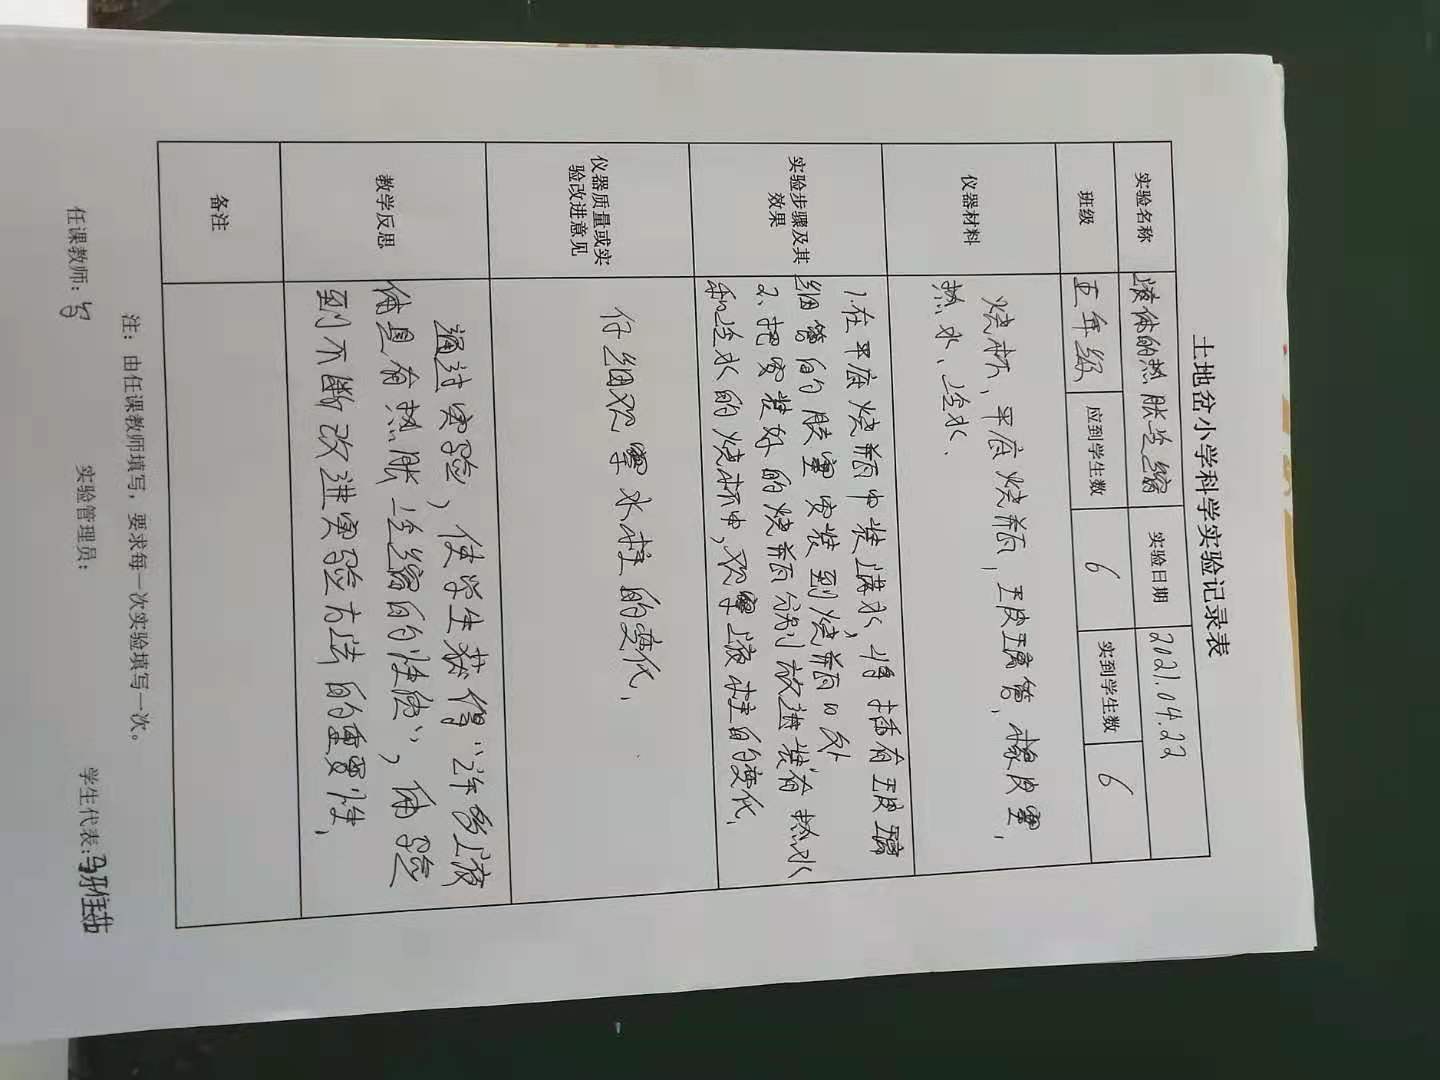 土地岔小学科学实验记录表
实验名称 液体的热胀冷缩 实验日期 2021.04.22
班级 五年级 应到学生数 6 实到学生数 6
仪器材料
烧杯、平底烧瓶,玻璃管,橡皮塞,
热水、冷水.
实验步骤及其
效果
1.在平底烧瓶中装满水,将插有玻璃
细管的胶塞安装到烧瓶口处
2.把安装好的烧瓶分别放进装有热水
和冷水的烧杯中,观察液柱的变化.
仪器质量或实
验改进意见
仔细观察水柱的变化.
教学反思
通过实验,使学生获得“许多液
体具有热胀冷缩的性质”,体验
到不断改进实验方法的重要性.
备注
注:由任课教师填写,要求每一次实验填写一次。
任课教师: 实验管理员: 学生代表: